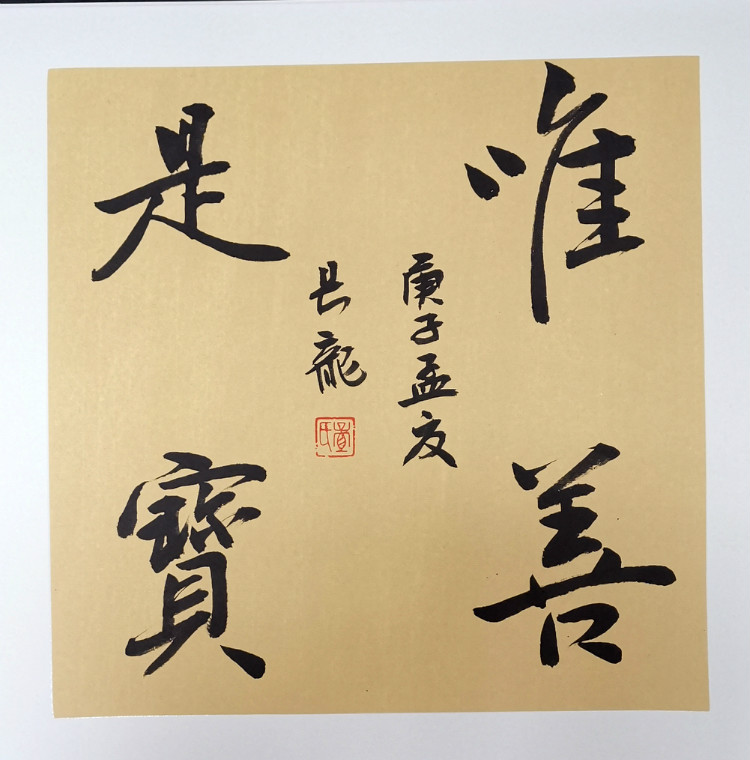 唯善
是寶
庚子孟夏
長龍